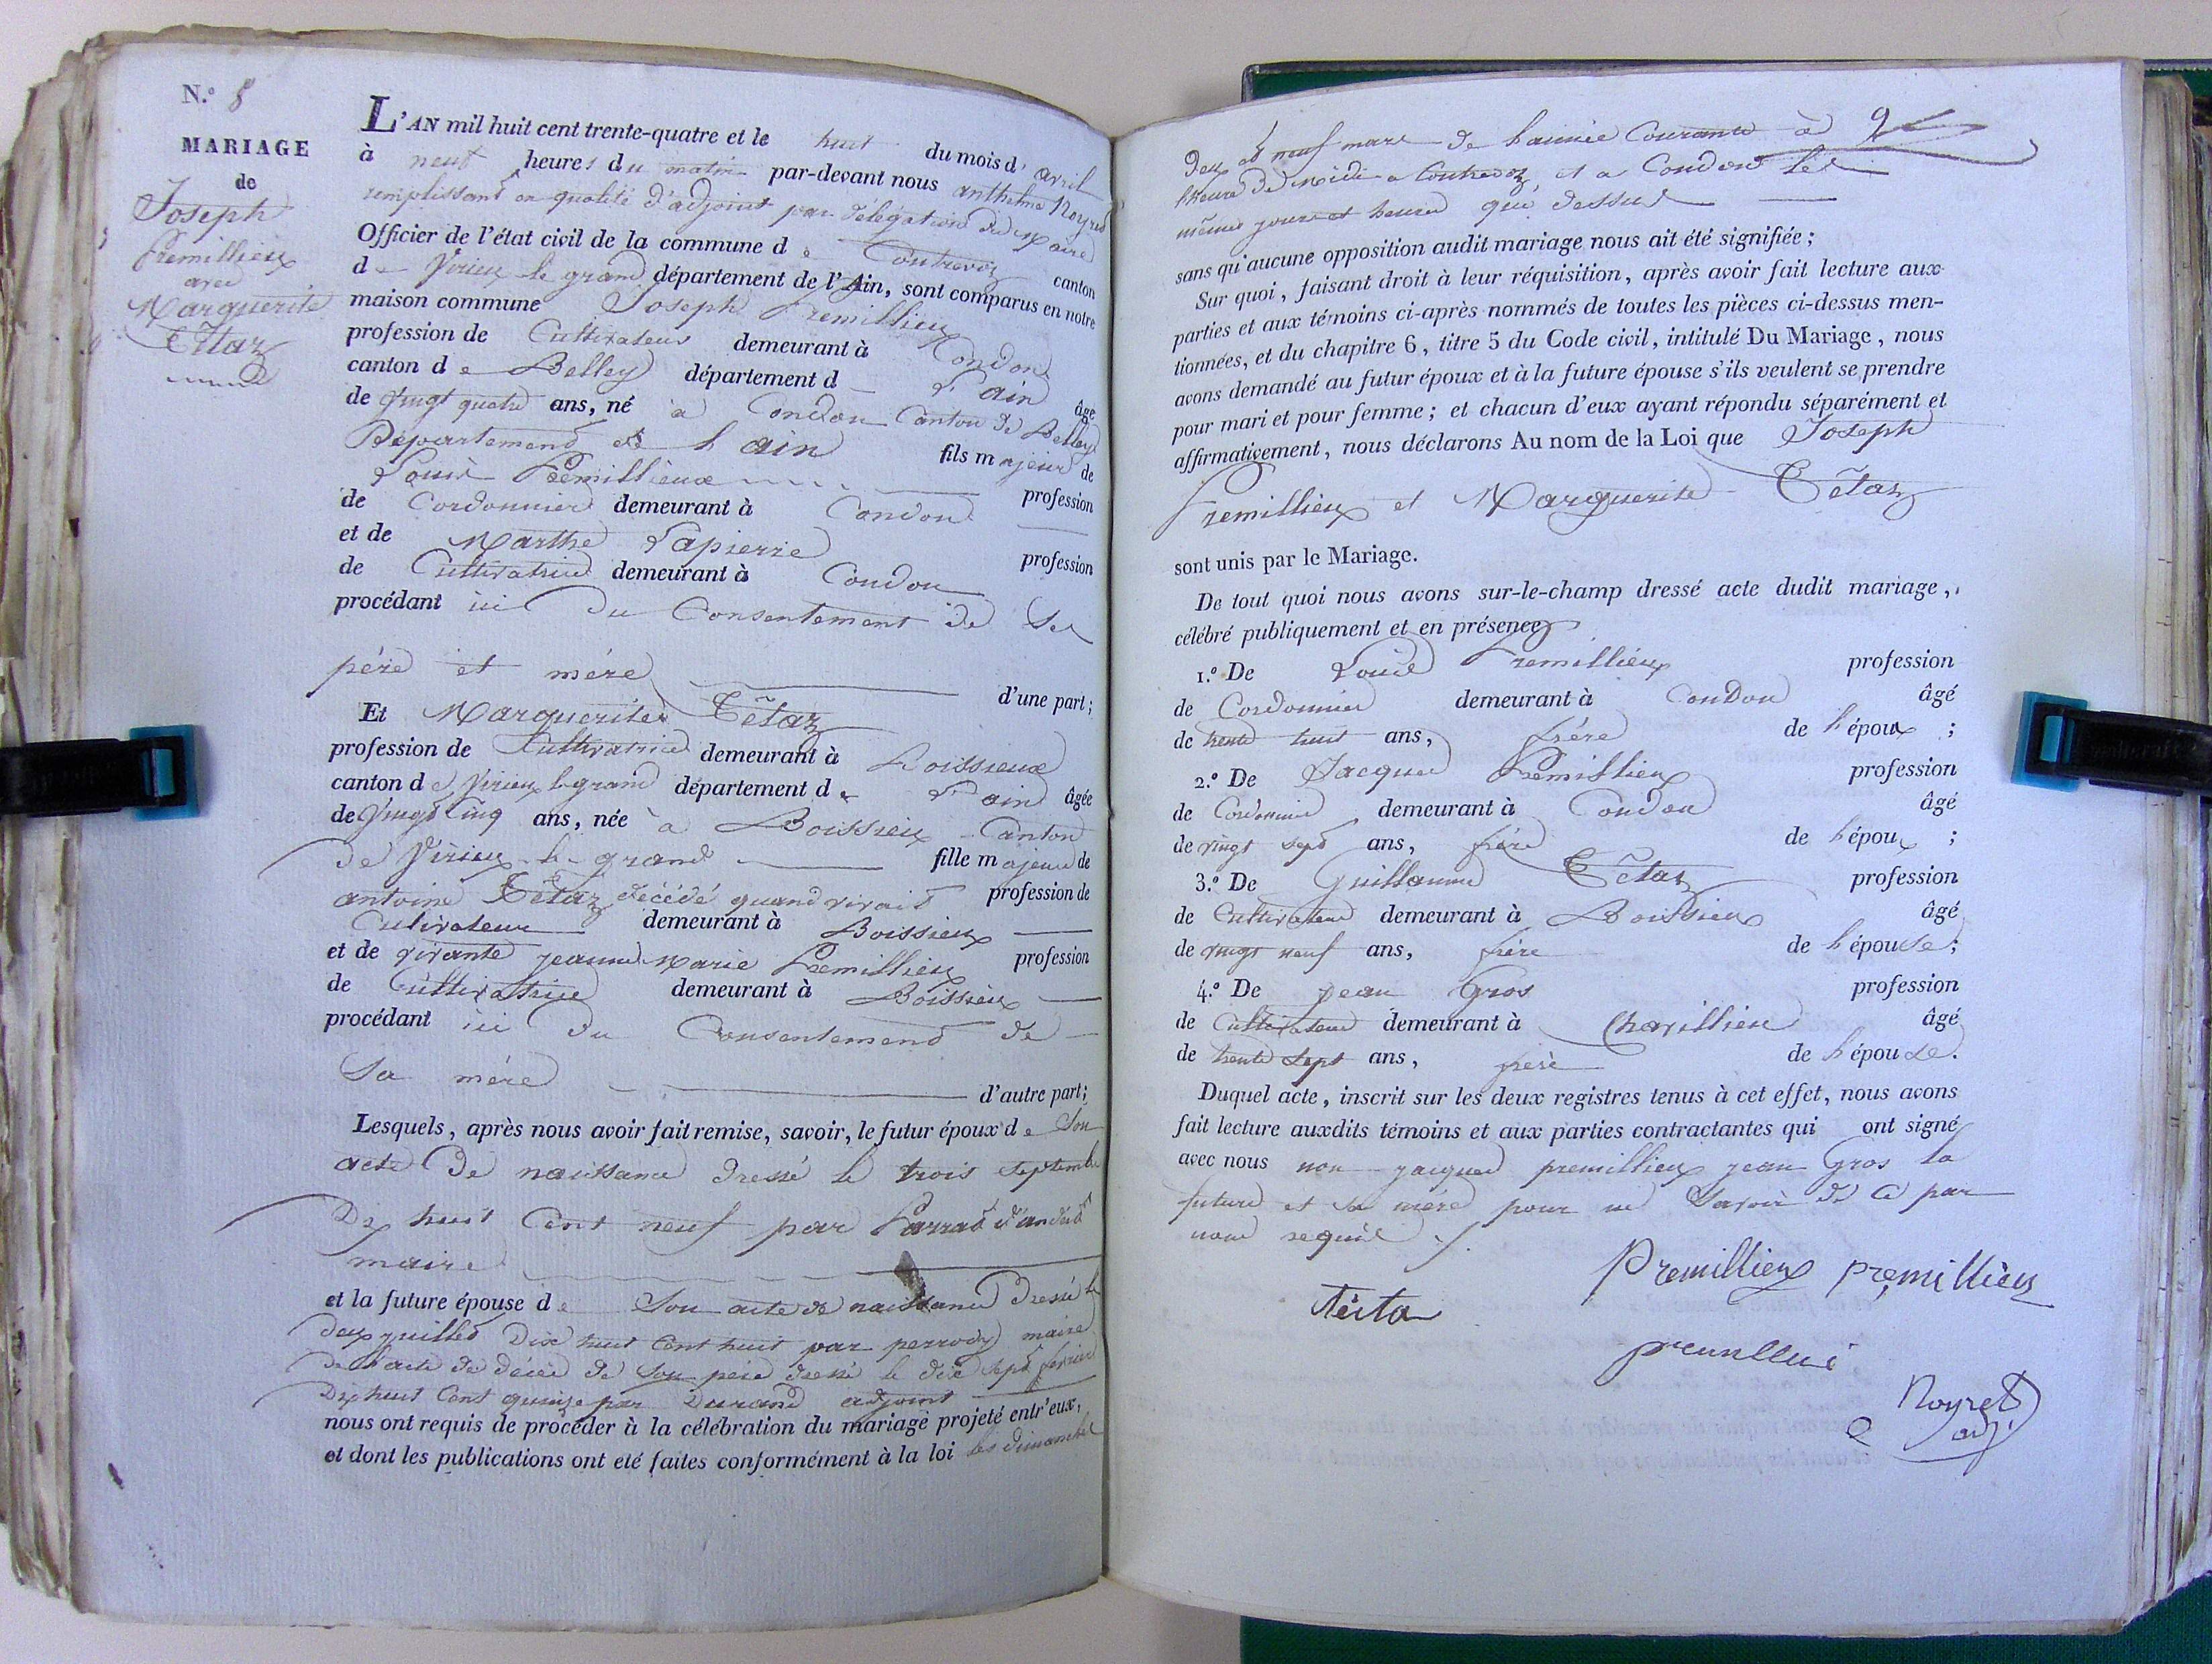 N.° 8
MARIAGE
de
Joseph
Premillieux
avec
Marguerite
Têtaz
L'AN mil huit cent trente-quatre et le huit du mois d' avril
à neuf heures du matin par-devant nous anthelme Noyret
remplissant en qualité d'adjoint par délégation du maire
Officier de l'état civil de la commune de Contrevoz canton
de Virieux le grand département de l'Ain, sont comparus en notre
maison commune Joseph Premillieux
profession de Cultivateur demeurant à Condon
canton de Belley département d L'ain âgé
de Vingt quatre ans, né à Condon Canton de Belley
Département de l'ain fils majeur de
Louis Premillieux profession
de Cordonnier demeurant à Condon
et de Marthe Lapierre profession
de Cultivatrice demeurant à Condon
procédant ici du Consentement de Ses
père et mère d'une part;
Et Marguerite Têtaz
profession de Cultivatrice demeurant à Boissieux
canton de Virieux le grand département de L'ain âgée
de Vingt Cinq ans, née à Boissieux Canton
de Virieux le grand fille majeure de
antoine Têtaz décédé quand vivait profession de
Cultivateur demeurant à Boissieux
et de vivante jeanne Marie Premillieux profession
de Cultivatrice demeurant à Boissieux
procédant ici du Consentement de
Sa mère d'autre part;
Lesquels, après nous avoir fait remise, savoir, le futur époux de Son
acte De naissance dressé le trois septembre
Dix huit Cent neuf par Parrat
maire
et la future épouse de Son acte de naissance Dressé le
deux juillet Dix huit Cent huit par perrody maire
de l'acte de décès de Son père dressé le dix sept février
Dix huit Cent quinze par Durand adjoint
nous ont requis de procéder à la célébration du mariage projeté entr'eux,
et dont les publications ont été faites conformément à la loi les dimanches
deux et neuf mars de l'année Courante à
l'heure de midi a Contrevoz et a Condon les
mêmes jours et heures que dessus
sans qu'aucune opposition audit mariage nous ait été signifiée;
Sur quoi, faisant droit à leur réquisition, après avoir fait lecture aux
parties et aux témoins ci-après nommés de toutes les pièces ci-dessus men-
tionnées, et du chapitre 6, titre 5 du Code civil, intitulé Du Mariage, nous
avons demandé au futur époux et à la future épouse s'ils veulent se prendre
pour mari et pour femme; et chacun d'eux ayant répondu séparément et
affirmativement, nous déclarons Au nom de la Loi que Joseph
Premillieux et Marguerite Têtaz
sont unis par le Mariage.
De tout quoi nous avons sur-le-champ dressé acte dudit mariage,
célébré publiquement et en présence
1.° De Louis Premillieux profession
de Cordonnier demeurant à Condon âgé
de trente huit ans, frère de l'époux ;
2.° De Jacques Premillieux profession
de Cordonnier demeurant à Condon âgé
de vingt sept ans, frère de l'époux ;
3.° De Guillaume Têtaz profession
de Cultivateur demeurant à Boissieux âgé
de vingt neuf ans, frère de l'épouse;
4.° De jean Gros profession
de Cultivateur demeurant à Chavillieu âgé
de trente sept ans, frère de l'épouse.
Duquel acte, inscrit sur les deux registres tenus à cet effet, nous avons
fait lecture auxdits témoins et aux parties contractantes qui ont signé
avec nous non jacques premillieux jean Gros la
future et sa mère pour ne Savoir de Ce par
nous requis
Premillieux premillieux
Têta
Noyret
adj.